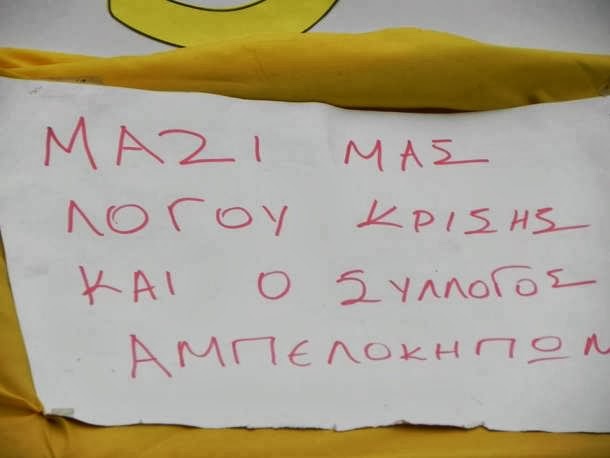 ΜΑΖΙ ΜΑΣ
ΛΟΓΟΥ ΚΡΙΣΗΣ
ΚΑΙ Ο ΣΥΛΛΟΓΟΣ
ΑΜΠΕΛΟΚΗΠΩΝ